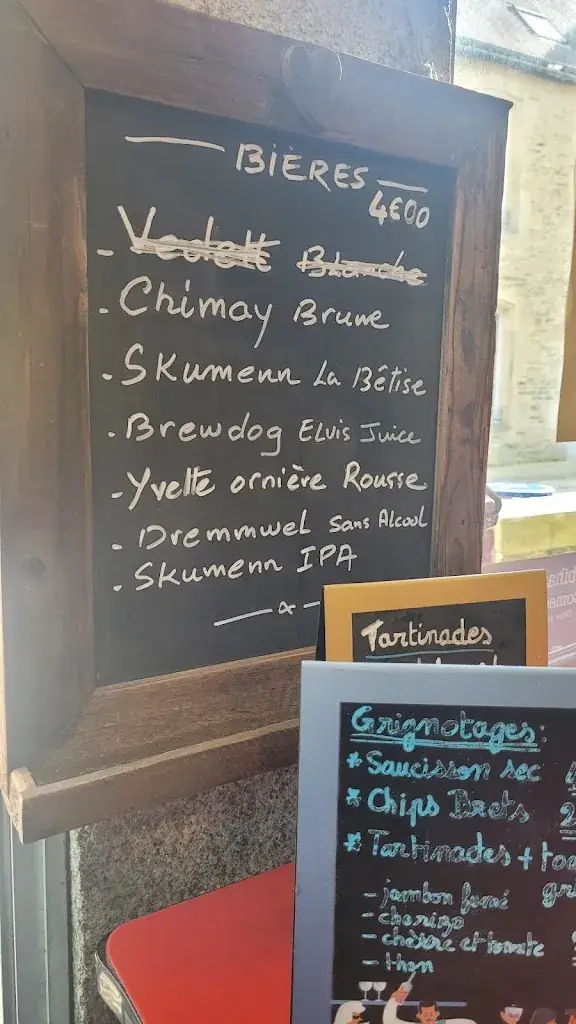 BIÈRES
4€00
- Vedett Blanche
- Chimay Brune
- Skumenn La Bêtise
- Brewdog Elvis Juice
- Yvette ornière Rousse
- Dremmwel Sans Alcool
- Skumenn IPA
Tartinades
Grignotages:
* Saucisson sec
* Chips Brets
* Tartinades +
- jambon fumé
- chorizo
- chèvre et tomate
- thon